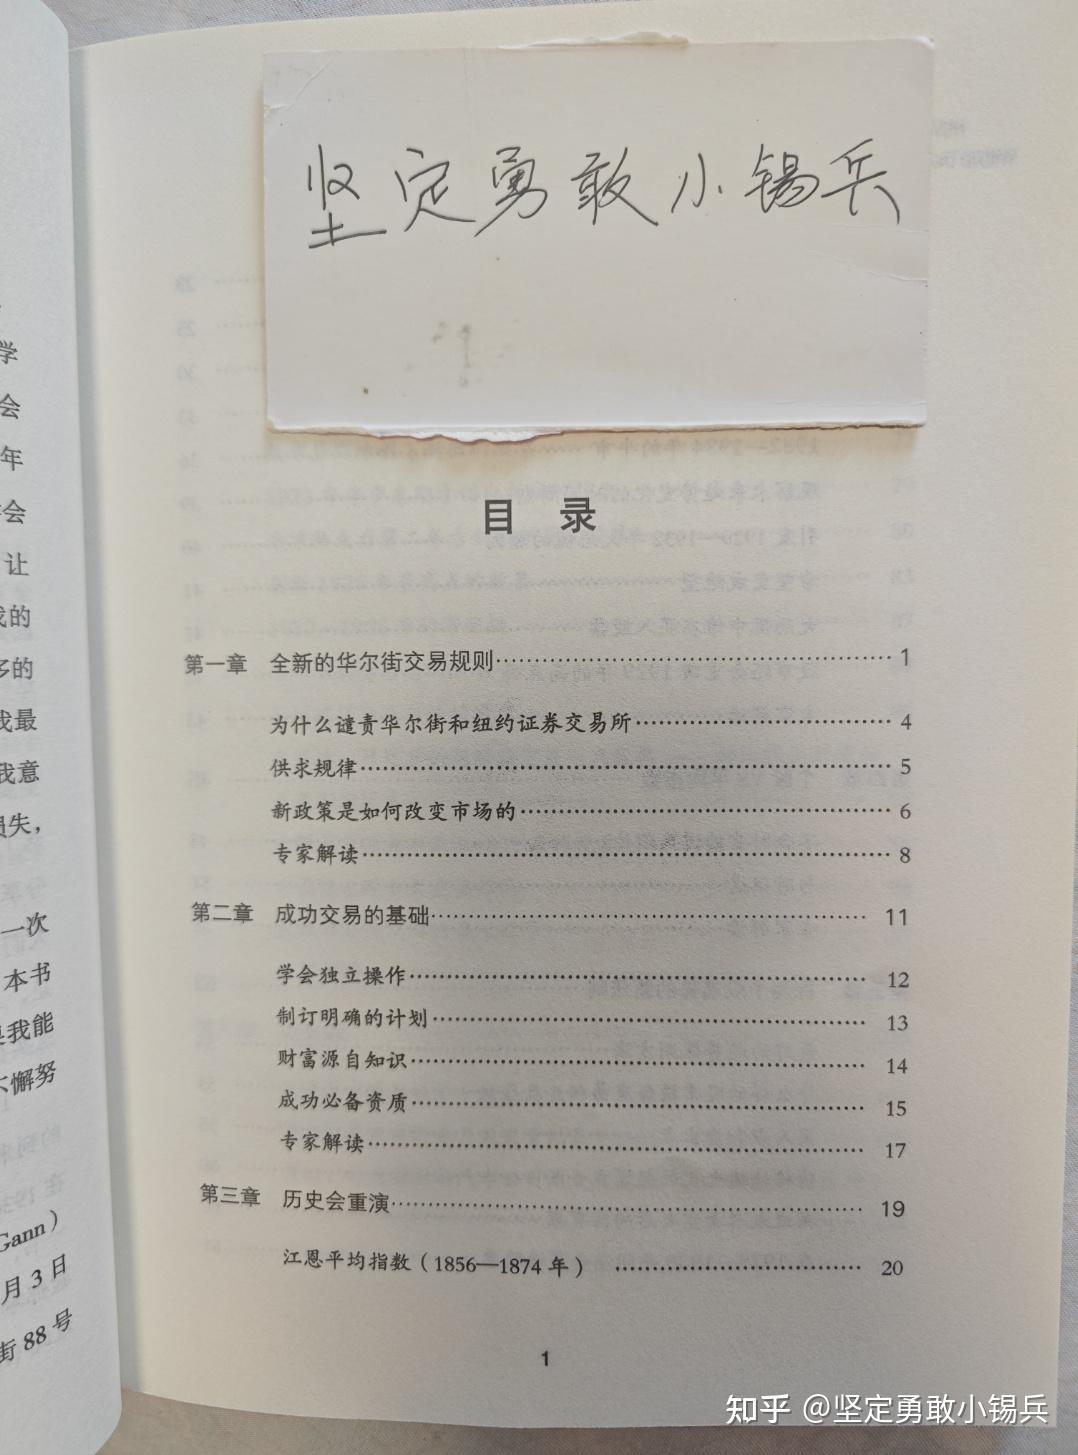 坚定勇敢小锡兵
学
会
年
会
让
的
多的
我最
我意
损失,
一次
本书
我能
懈努
Gann)
月3日
街88号
目 录
第一章 全新的华尔街交易规则……1
为什么谴责华尔街和纽约证券交易所……4
供求规律……5
新政策是如何改变市场的……6
专家解读……8
第二章 成功交易的基础……11
学会独立操作……12
制订明确的计划……13
财富源自知识……14
成功必备资质……15
专家解读……17
第三章 历史会重演……19
江恩平均指数(1856—1874年)……20
1
知乎 @坚定勇敢小锡兵